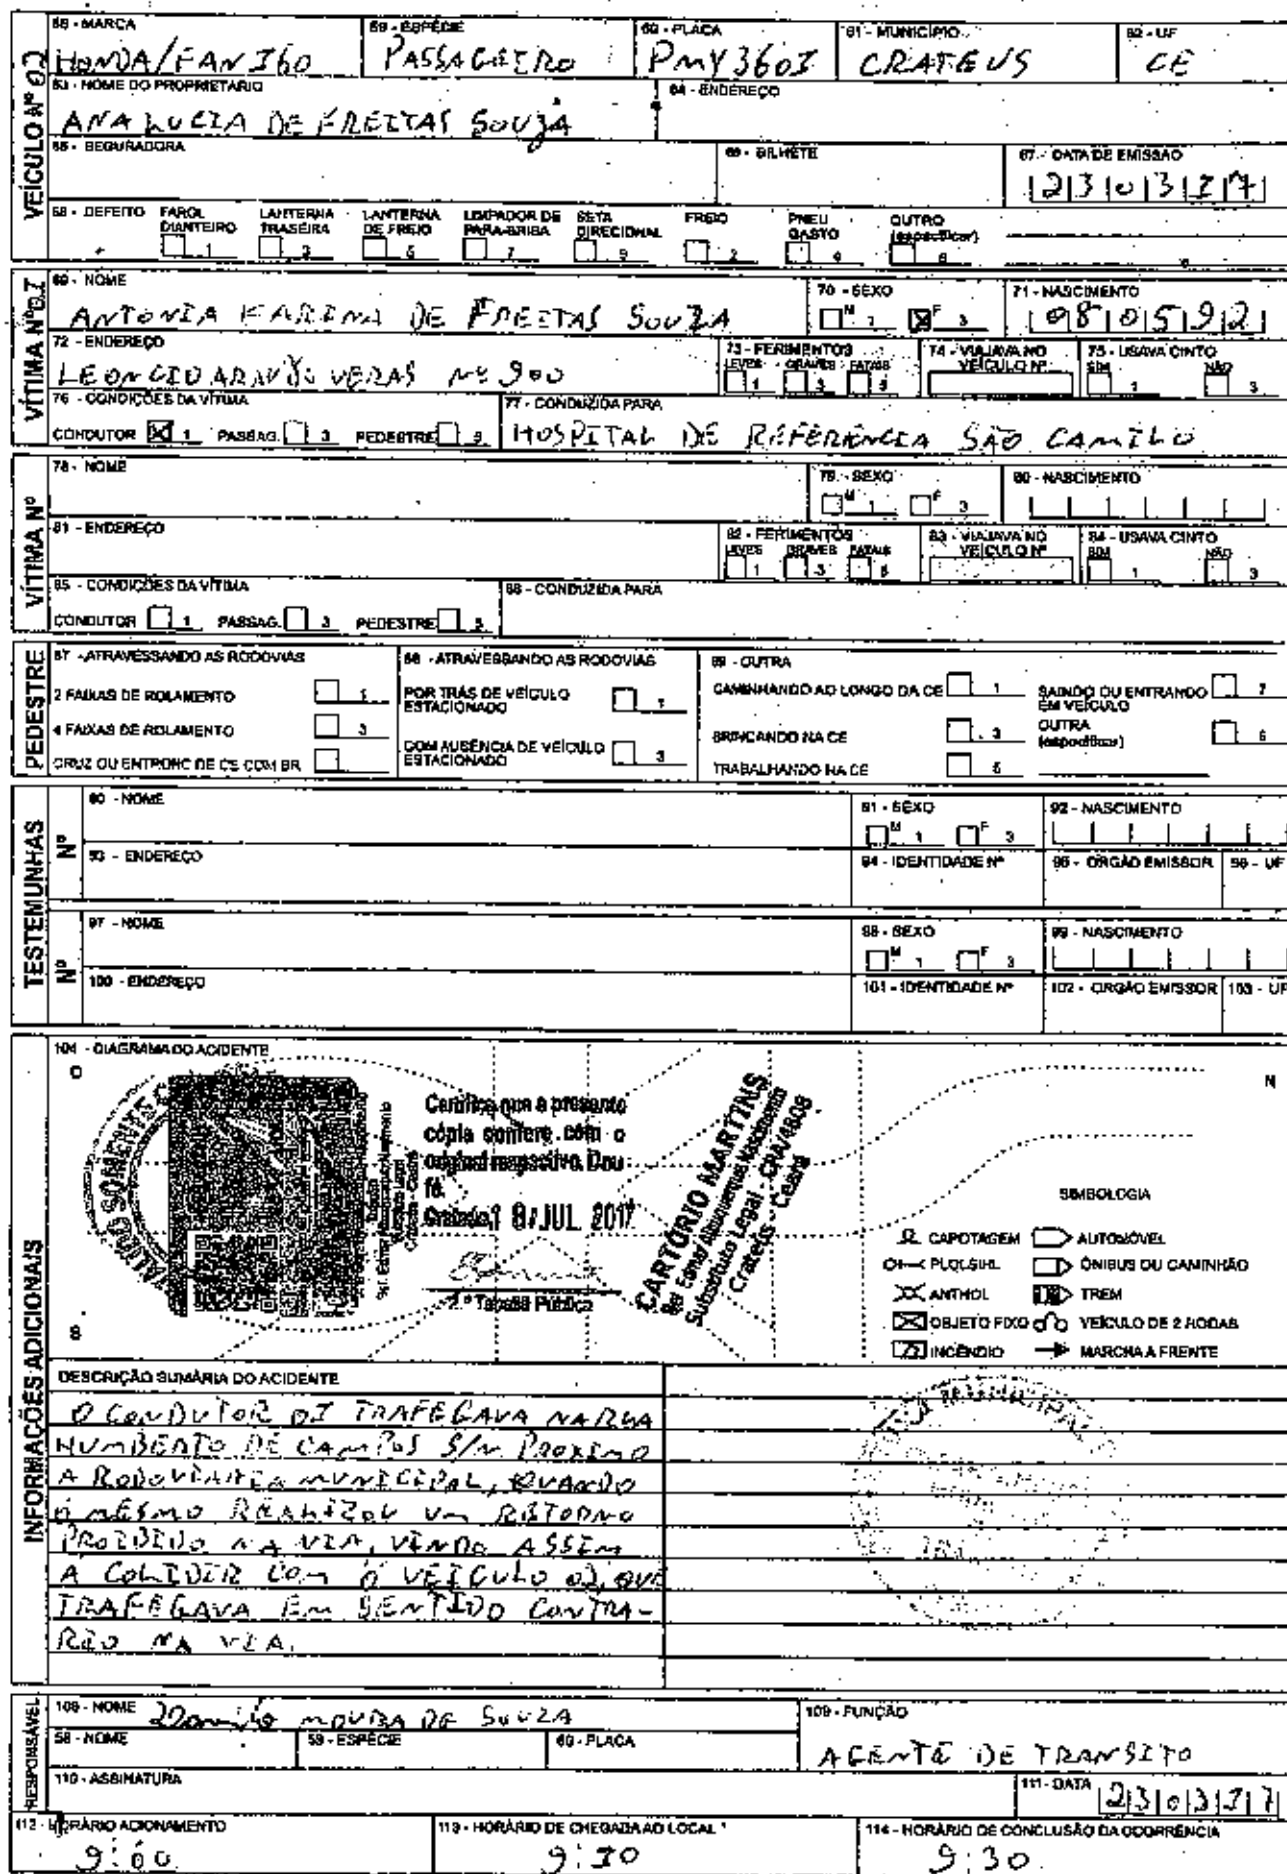 VEÍCULO Nº 02
58 - MARCA
HONDA/FAN I60
59 - ESPÉCIE
PASSAGEIRO
60 - PLACA
PMY360I
61 - MUNICÍPIO
CRATEUS
62 - UF
CE
63 - NOME DO PROPRIETÁRIO
ANA LUCIA DE FREITAS SOUZA
64 - ENDEREÇO
65 - SEGURADORA
66 - BILHETE
67 - DATA DE EMISSÃO
230317
68 - DEFEITO
FAROL DIANTEIRO 1
LANTERNA TRASEIRA 3
LANTERNA DE FREIO 5
LIMPADOR DE PARA-BRISA 7
SETA DIRECIONAL 9
FREIO 2
PNEU GASTO 4
OUTRO (especificar) 6
VÍTIMA Nº 0I
69 - NOME
ANTONIA KARINA DE FREITAS SOUZA
70 - SEXO
M 1 F 3
71 - NASCIMENTO
080592
72 - ENDEREÇO
LEONCIO ARAUJO VERAS Nº 900
73 - FERIMENTOS
LEVES 1 GRAVES 3 FATAIS 5
74 - VIAJAVA NO VEÍCULO Nº
75 - USAVA CINTO
SIM 1 NÃO 3
76 - CONDIÇÕES DA VÍTIMA
CONDUTOR 1 PASSAG. 3 PEDESTRE 5
77 - CONDUZIDA PARA
HOSPITAL DE REFERÊNCIA SÃO CAMILO
VÍTIMA Nº
78 - NOME
79 - SEXO
M 1 F 3
80 - NASCIMENTO
81 - ENDEREÇO
82 - FERIMENTOS
LEVES 1 GRAVES 3 FATAIS 5
83 - VIAJAVA NO VEÍCULO Nº
84 - USAVA CINTO
SIM 1 NÃO 3
85 - CONDIÇÕES DA VÍTIMA
CONDUTOR 1 PASSAG. 3 PEDESTRE 5
86 - CONDUZIDA PARA
PEDESTRE
87 - ATRAVESSANDO AS RODOVIAS
2 FAIXAS DE ROLAMENTO 1
4 FAIXAS DE ROLAMENTO 3
CRUZ OU ENTRONC DE CE COM BR
88 - ATRAVESSANDO AS RODOVIAS
POR TRÁS DE VEÍCULO ESTACIONADO 1
COM AUSÊNCIA DE VEÍCULO ESTACIONADO 3
89 - OUTRA
CAMINHANDO AO LONGO DA CE 1
BRINCANDO NA CE 3
TRABALHANDO NA CE 5
SAINDO OU ENTRANDO EM VEÍCULO 7
OUTRA (especificar) 6
TESTEMUNHAS
Nº
90 - NOME
91 - SEXO
M 1 F 3
92 - NASCIMENTO
93 - ENDEREÇO
94 - IDENTIDADE Nº
95 - ÓRGÃO EMISSOR
96 - UF
Nº
97 - NOME
98 - SEXO
M 1 F 3
99 - NASCIMENTO
100 - ENDEREÇO
101 - IDENTIDADE Nº
102 - ÓRGÃO EMISSOR
103 - UF
INFORMAÇÕES ADICIONAIS
104 - DIAGRAMA DO ACIDENTE
O
N
S
Certifico que a presente
cópia confere com o
original respectivo. Dou
fé.
Crateús, 18/JUL. 2017
CARTÓRIO MARTINS
Bel Edmar Albuquerque Nascimento
Substituto Legal - CPA/4808
Crateús - Ceará
SIMBOLOGIA
CAPOTAGEM
AUTOMÓVEL
ÔNIBUS OU CAMINHÃO
TREM
OBJETO FIXO
VEÍCULO DE 2 RODAS
INCÊNDIO
MARCHA A FRENTE
DESCRIÇÃO SUMÁRIA DO ACIDENTE
O CONDUTOR 0I TRAFEGAVA NA RUA
HUMBERTO DE CAMPOS S/N PROXIMO
A RODOVIARIA MUNICIPAL, QUANDO
O MESMO REALIZOU UM RETORNO
PROIBIDO NA VIA, VINDO ASSIM
A COLIDIR COM O VEÍCULO 02, QUE
TRAFEGAVA EM SENTIDO CONTRA-
RIO NA VIA.
RESPONSÁVEL
108 - NOME
MOURA DE SOUZA
109 - FUNÇÃO
AGENTE DE TRANSITO
58 - NOME
59 - ESPÉCIE
60 - PLACA
110 - ASSINATURA
111 - DATA
230317
112 - HORÁRIO ACIONAMENTO
9:00
113 - HORÁRIO DE CHEGADA AO LOCAL
9:10
114 - HORÁRIO DE CONCLUSÃO DA OCORRÊNCIA
9:30